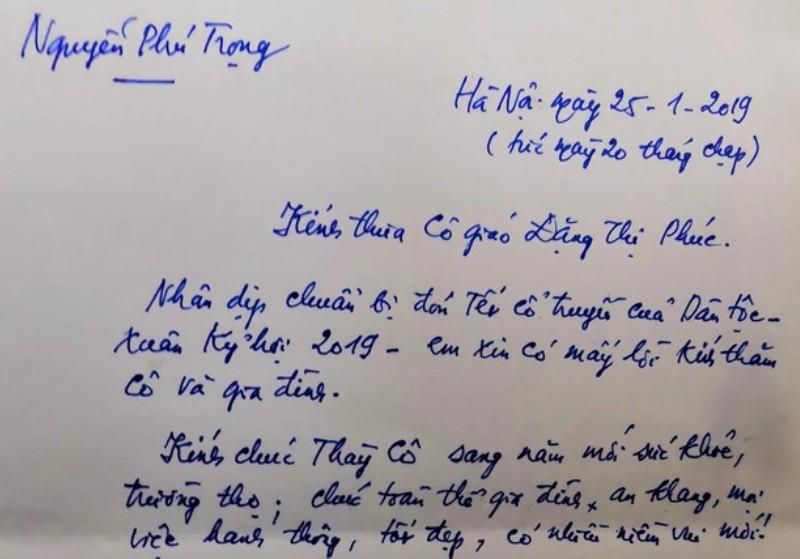 Nguyễn Phú Trọng
Hà Nội ngày 25-1-2019
(tức ngày 20 tháng chạp)
Kính thưa Cô giáo Đặng Thị Phúc.
Nhân dịp chuẩn bị đón Tết cổ truyền của Dân tộc -
Xuân Kỷ hợi 2019 - em xin có mấy lời kính thăm
Cô và gia đình.
Kính chúc Thầy Cô sang năm mới sức khỏe,
trường thọ; chúc toàn thể gia đình an khang, mọi
việc hanh thông, tốt đẹp, có nhiều niềm vui mới.